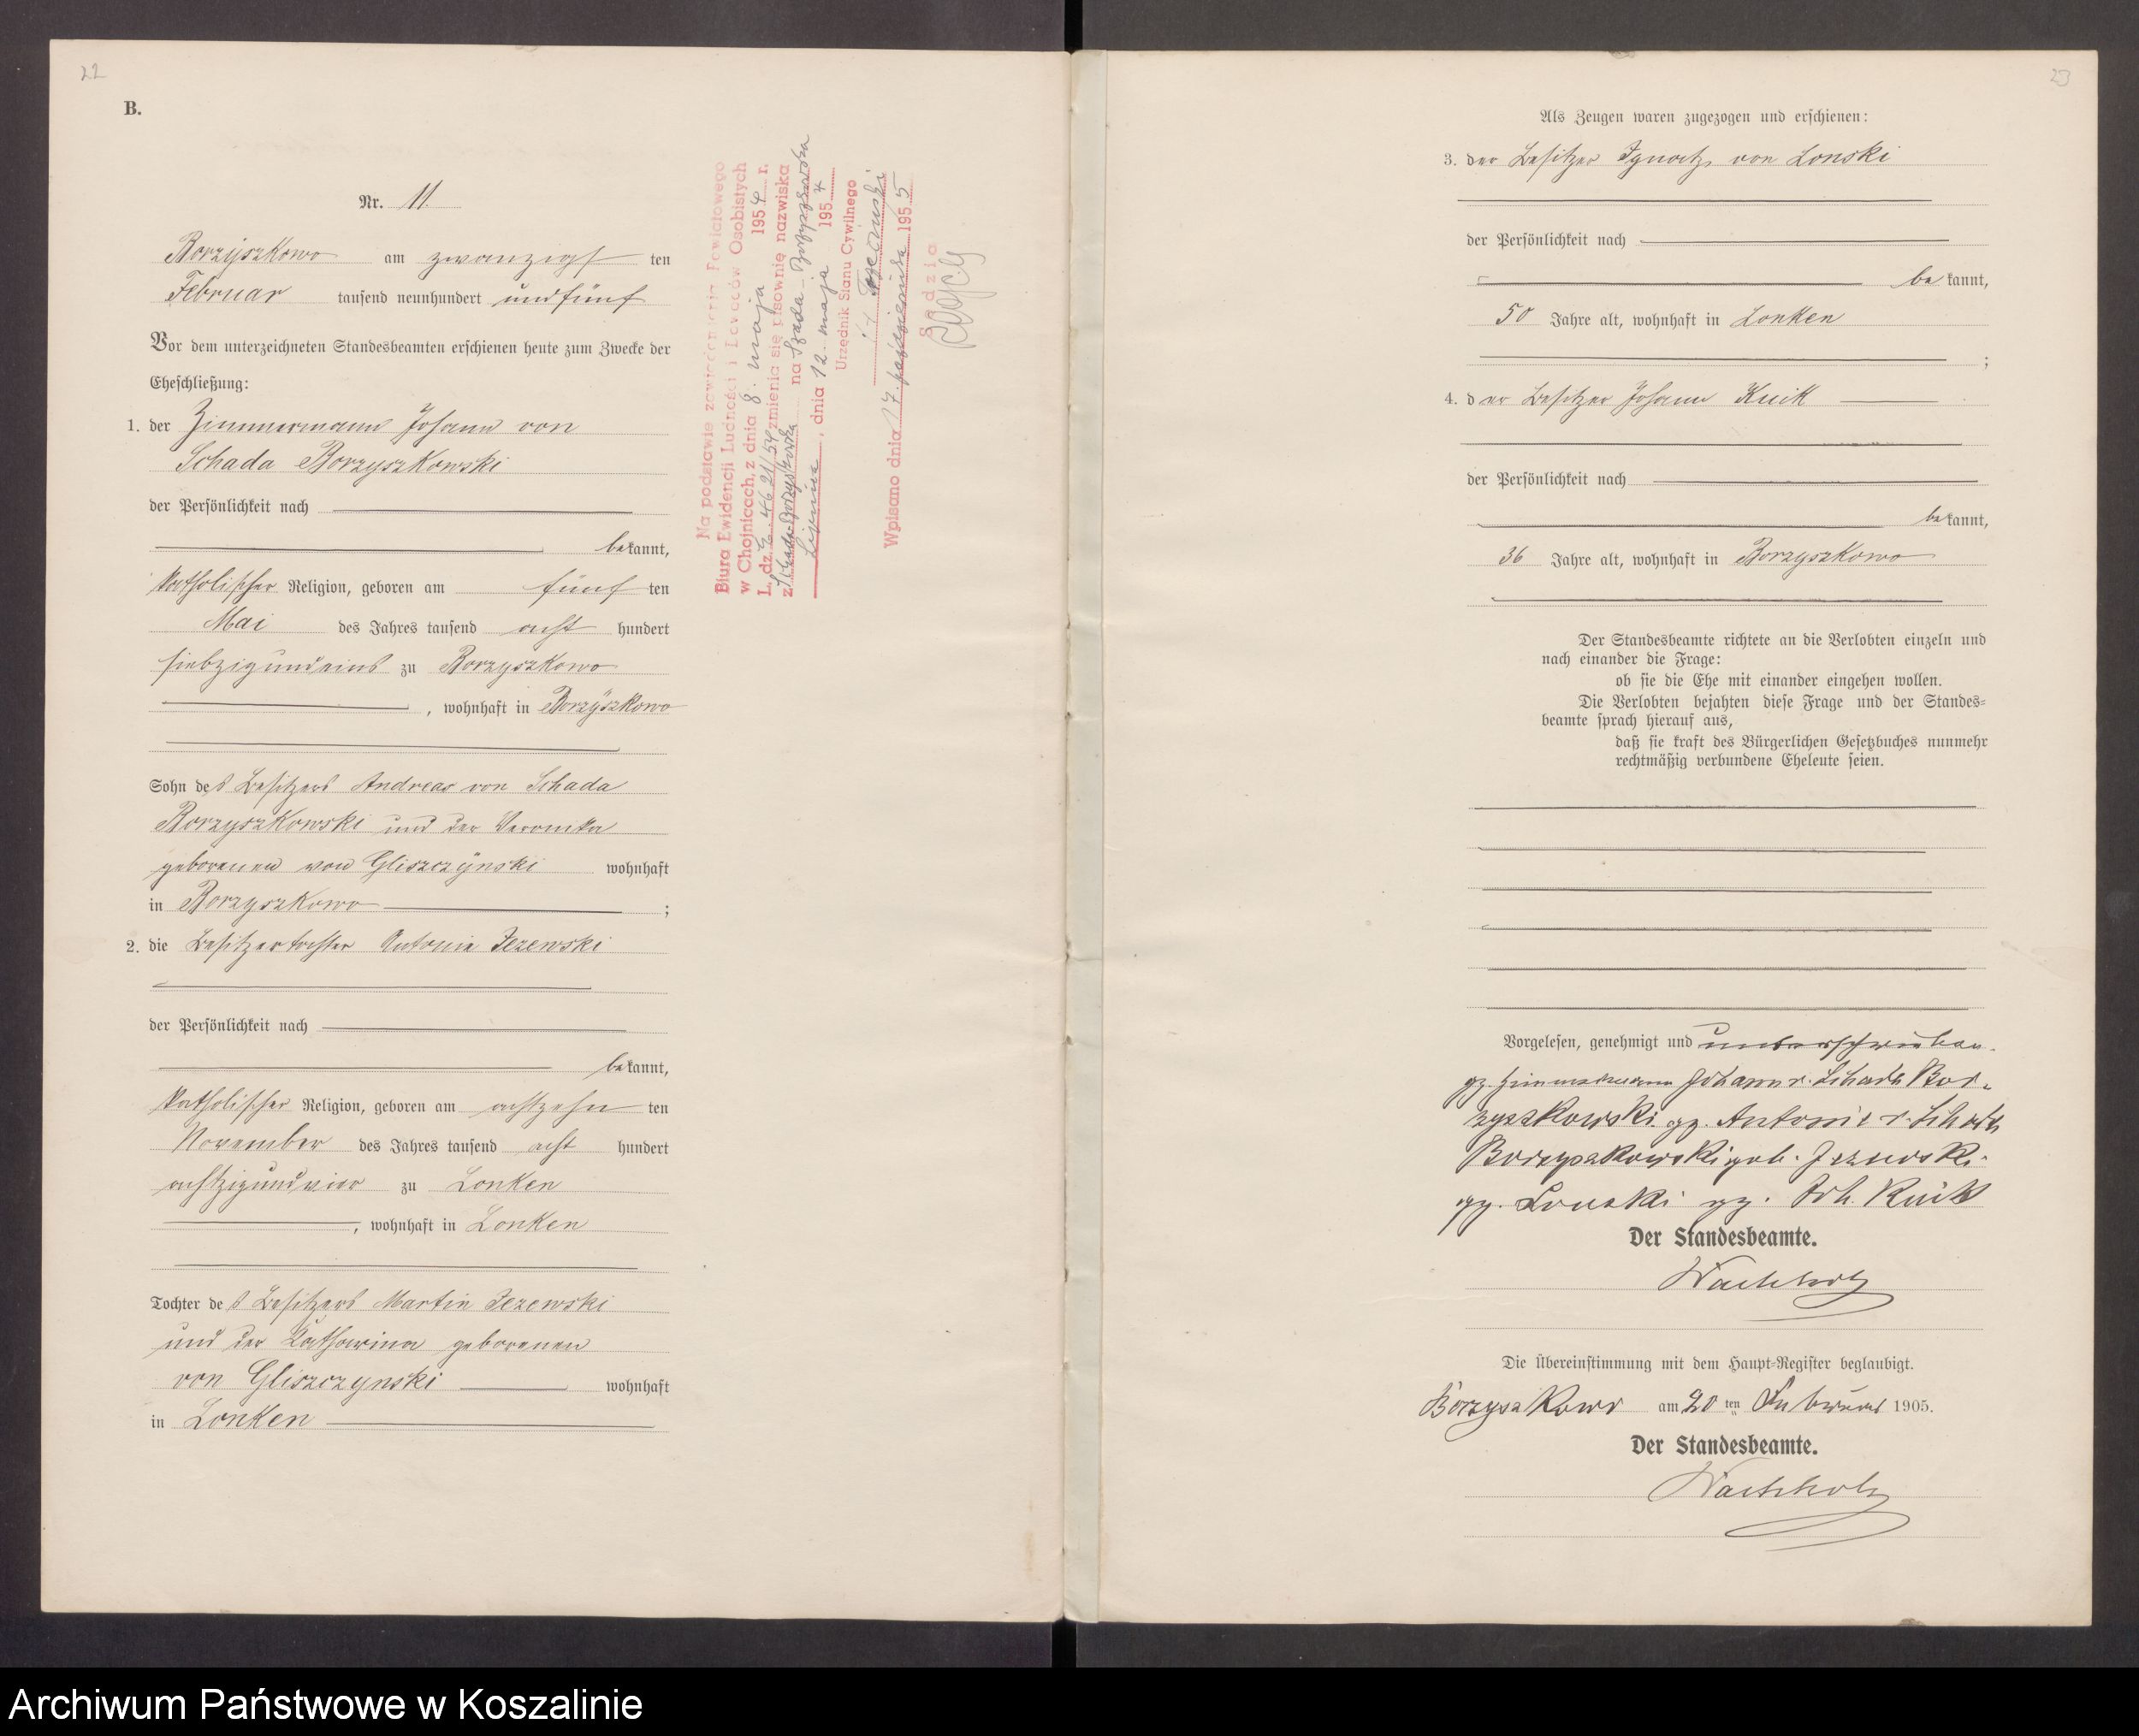 22
B.
Nr. 11.
Borzyszkowo am zwanzigsten
Februar tausend neunhundert und fünf
Vor dem unterzeichneten Standesbeamten erschienen heute zum Zwecke der
Eheschließung:
1. der Zimmermann Johann von
Schada Borzyszkowski
der Persönlichkeit nach
bekannt,
katholischer Religion, geboren am fünften
Mai des Jahres tausend acht hundert
siebzigundeins zu Borzyszkowo
, wohnhaft in Borzyszkowo
Sohn des Besitzers Andreas von Schada
Borzyszkowski und der Veronika
geborenen von Gliszczynski wohnhaft
in Borzyszkowo ;
2. die Besitzertochter Antonie Jezewski
der Persönlichkeit nach
bekannt,
katholischer Religion, geboren am achtzehnten
November des Jahres tausend acht hundert
achtzigundvier zu Lonken
, wohnhaft in Lonken
Tochter des Besitzers Martin Jezewski
und der Katharina geborenen
von Gliszczynski wohnhaft
in Lonken
Na podstawie zawiadomienia Powiatowego
Biura Ewidencji Ludności i Dowodów Osobistych
w Chojnicach, z dnia 8. maja 1954 r.
L. dz. 4621/54 zmienia się pisownię nazwiska
z Schada-Borzyszkowska na Szada-Borzyszkowska
Lipnica, dnia 12. maja 1954
Urzędnik Stanu Cywilnego
Wpisano dnia 17. października 1955
Sędzia
23
Als Zeugen waren zugezogen und erschienen:
3. der Besitzer Ignatz von Lonski
der Persönlichkeit nach
bekannt,
50 Jahre alt, wohnhaft in Lonken
;
4. der Besitzer Johann Kuik
der Persönlichkeit nach
bekannt,
36 Jahre alt, wohnhaft in Borzyszkowo
Der Standesbeamte richtete an die Verlobten einzeln und
nach einander die Frage:
ob sie die Ehe mit einander eingehen wollen.
Die Verlobten bejahten diese Frage und der Standes-
beamte sprach hierauf aus,
daß sie kraft des Bürgerlichen Gesetzbuches nunmehr
rechtmäßig verbundene Eheleute seien.
Vorgelesen, genehmigt und unterschrieben.
gz. Zimmermann Johann v. Schada Bor-
zyszkowski gz. Antonie v. Schada
Borzyszkowski geb. Jezewski.
gz. Lonski gz. Joh. Kuik
Der Standesbeamte.
Wachholz
Die Übereinstimmung mit dem Haupt-Register beglaubigt.
Borzyszkowo am 20 ten Februar 1905.
Der Standesbeamte.
Wachholz
Archiwum Państwowe w Koszalinie